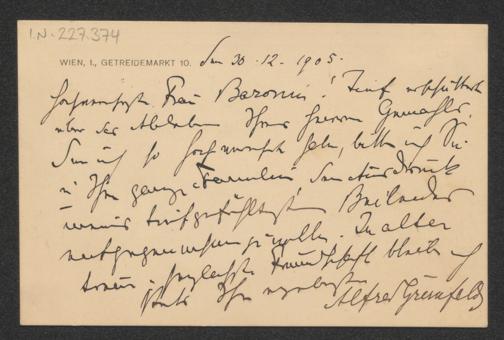 I.N. 227.374
WIEN, I., GETREIDEMARKT 10. den 30.12.1905.
Hochverehrte Frau Baronin! Tief erschüttert
über das Ableben Ihres Herrn Gemahls,
den ich so hochverehrt habe, bitte ich Sie
u Ihre ganze Familie den Ausdruck
meines tiefgefühltesten Beileides
entgegennehmen zu wollen. In alter
treuer Freundschaft bleibe ich
stets Ihr ergebenster
Alfred Grünfeld